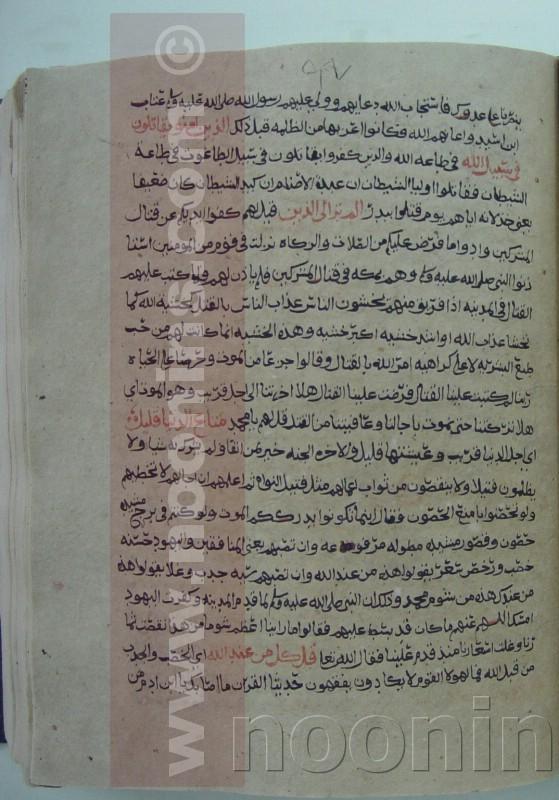 فاستجاب الله دعايهم وولي عليهم رسول الله صلى الله عليه عتاب
ابن اسيد واعانهم الله فكانوا اعز بها من الظلمه قبل ذلك الذين امنوا يقاتلون
في سبيل الله في طاعه الله والذين كفروا يقاتلون في سبيل الطاغوت في طاعه
الشيطان فقاتلوا اوليا الشيطان ان كيد الشيطان كان ضعيفا
اياهم يوم قتلوا ببدر الم تر الى الذين قيل لهم كفوا ايديكم عن قتال
المشركين وادوا ما فرض عليكم من الصلات والزكاه نزلت في قوم من المومنين
النبي صلى الله عليه وهم بمكه في قتال المشركين فلم ياذن لهم فلما كتب عليهم
القتال في المدينه اذا فريق منهم يخشون الناس عذاب الناس بالقتل كخشيه الله كما
يخشا عذاب الله او اشد خشيه اكبر خشيه وهذه الخشيه انما كانت لهم من حب
طبع البشريه لا على كراهيه امر الله بالقتال وقالوا جزعا من الموت وحرصا على الحياه
ربنا لم كتبت علينا القتال فرضت علينا القتال هلا اخرتنا الى اجل قريب وهو الموت اي
هلا تركتنا حتى نموت باجالنا وعافيتنا من القتل قل لهم يا محمد متاع الدنيا قليل
اي اجل الدنيا قريب وعيشتها قليل والاخره الجنه خير لمن اتقا ولم يشرك به شيا ولا
يظلمون فتيلا ولا ينقصون من ثواب اعمالهم مثل فتيل النواه ثم اعلمهم ان اجالهم لا تخطيهم
ولو تحصنوا بامنع الحصون فقال اينما تكونوا يدرككم الموت ولو كنتم في بروج مشيده
حصون وقصور مشيده مطوله مرفوعه وان تصبهم يعني المنافقين واليهود حسنه
خصب ورخص سعر يقولوا هذه من عند الله وان تصبهم سيه جدب وغلا يقولوا هذه
من عندك هذه من شوم محمد وذلك ان النبي صلى الله عليه لما قدم المدينه وكفرت اليهود
امسك الله عنهم ما كان قد بسط عليهم فقالوا ما راينا اعظم شوما من هذا نقصت ثمارنا
وغلت اسعارنا منذ قدم علينا فقال الله تعا قل كل من عند الله اي الخصب والجدب
من قبل الله فمال هولا القوم لا يكادون يفقهون حديثا القران ما اصابك يا ابن ادم من
www.noonin ©
noonin